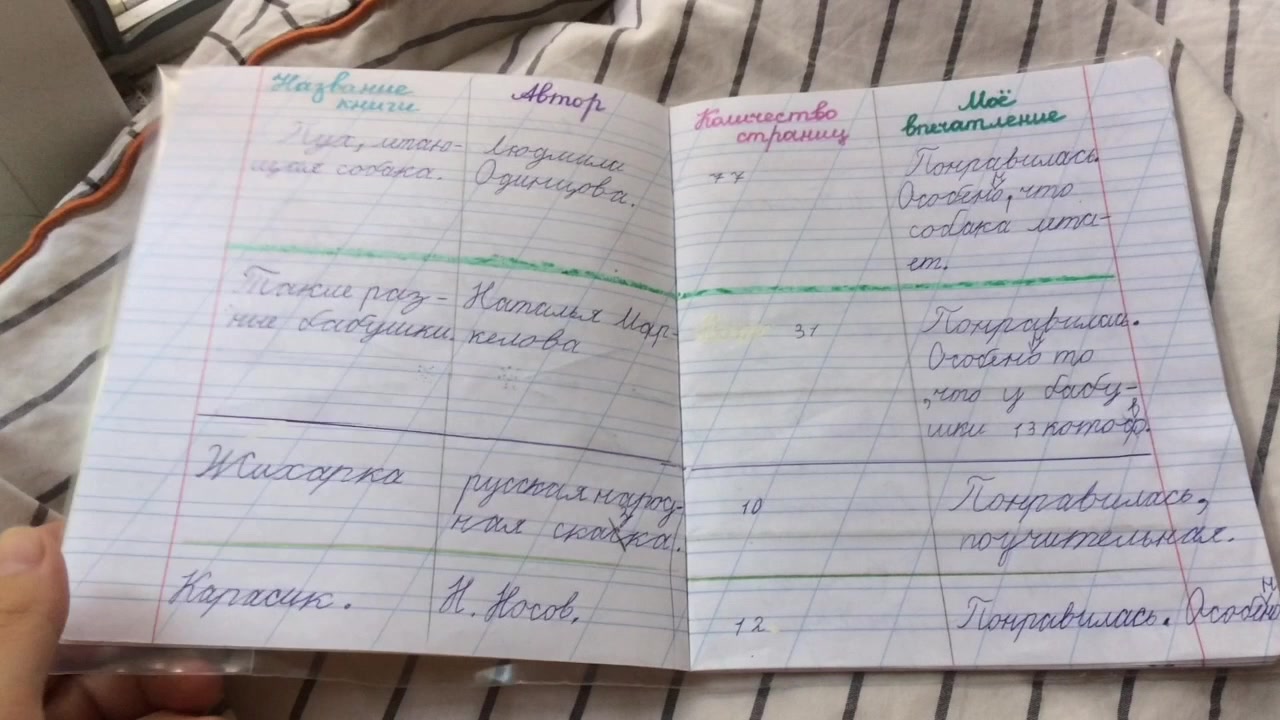 Название
книги
Автор
Количество
страниц
Моё
впечатление
Пух, летаю-
щая собака.
Людмила
Одинцова.
77
Понравилась.
Особенно, что
собака лета-
ет.
Такие раз-
ные бабушки.
Наталья Мар-
келова
31
Понравилась.
Особенно то
,чого у бабу-
шки 13 котов.
Жихарка
русская народ-
ная сказка.
10
Понравилась,
поучительная.
Карасик.
Н. Носов.
12
Понравилась. Особенно